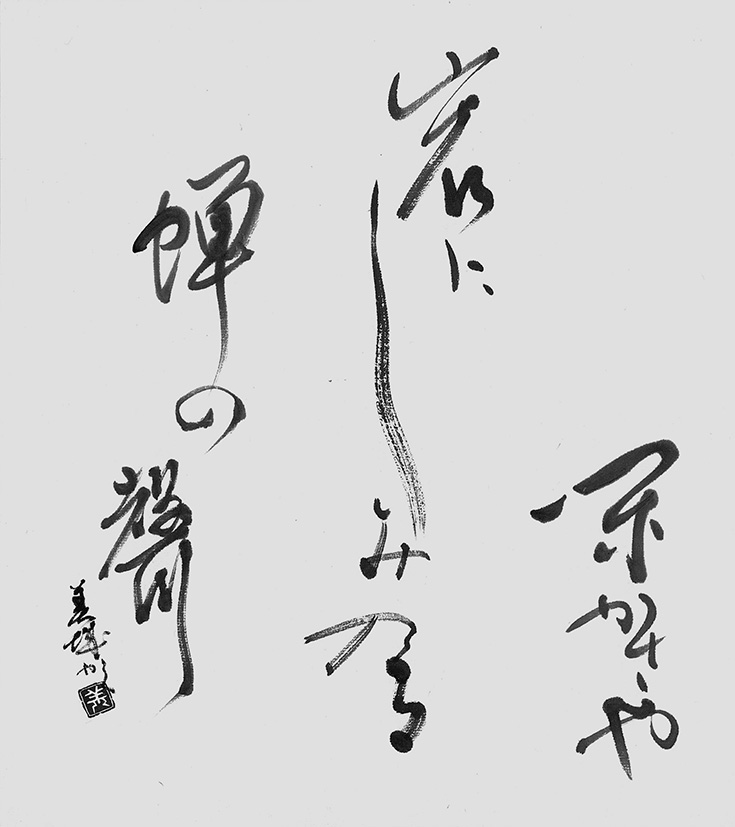 閑かさや
岩にしみ入る
蝉の聲
美城
美